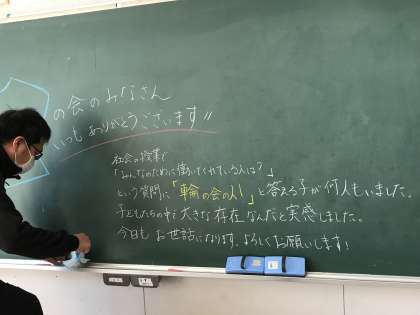 の会のみなさん
いつもありがとうございます!!
社会の授業で
「みんなのために働いてくれている人は?」
という質問に「輪の会の人!」と答える子が何人もいました。
子どもたちの中で大きな存在なんだと実感しました。
今日もお世話になります。よろしくお願いします!